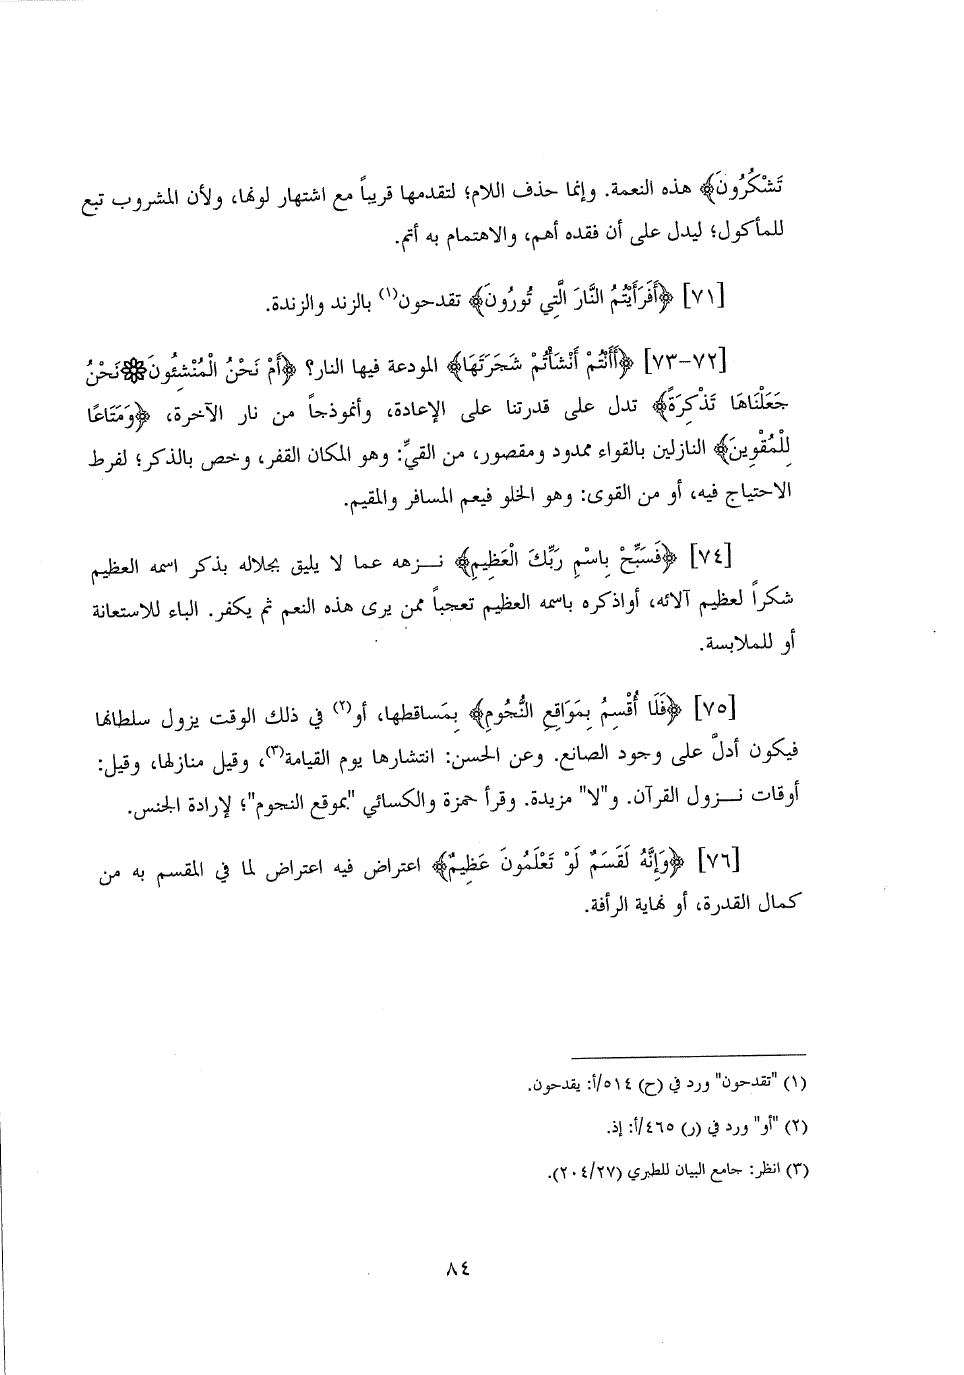 تَشْكُرُونَ﴾ هذه النعمة. وإنما حذف اللام؛ لتقدمها قريباً مع اشتهار لونها، ولأن المشروب تبع
للمأكول؛ ليدل على أن فقده أهم، والاهتمام به أتم.
[٧١] ﴿أَفَرَأَيْتُمُ النَّارَ الَّتِي تُورُونَ﴾ تقدحون(١) بالزند والزندة.
[٧٢-٧٣] ﴿أَأَنْتُمْ أَنْشَأْتُمْ شَجَرَتَهَا﴾ المودعة فيها النار؟ ﴿أَمْ نَحْنُ الْمُنْشِئُونَ۞نَحْنُ
جَعَلْنَاهَا تَذْكِرَةً﴾ تدل على قدرتنا على الإعادة، وأنموذجاً من نار الآخرة، ﴿وَمَتَاعًا
لِلْمُقْوِينَ﴾ النازلين بالقواء ممدود ومقصور، من القيِّ: وهو المكان القفر، وخص بالذكر؛ لفرط
الاحتياج فيه، أو من القوى: وهو الخلو فيعم المسافر والمقيم.
[٧٤] ﴿فَسَبِّحْ بِاسْمِ رَبِّكَ الْعَظِيمِ﴾ نـزهه عما لا يليق بجلاله بذكر اسمه العظيم
شكراً لعظيم آلائه، أواذكره باسمه العظيم تعجباً ممن يرى هذه النعم ثم يكفر. الباء للاستعانة
أو للملابسة.
[٧٥] ﴿فَلَا أُقْسِمُ بِمَوَاقِعِ النُّجُومِ﴾ بِمَساقطها، أو(٢) في ذلك الوقت يزول سلطانها
فيكون أدلَّ على وجود الصانع. وعن الحسن: انتشارها يوم القيامة(٣)، وقيل منازلها، وقيل:
أوقات نـزول القرآن. و"لا" مزيدة. وقرأ حمزة والكسائي "بموقع النجوم"؛ لإرادة الجنس.
[٧٦] ﴿وَإِنَّهُ لَقَسَمٌ لَوْ تَعْلَمُونَ عَظِيمٌ﴾ اعتراض فيه اعتراض لما في المقسم به من
كمال القدرة، أو نهاية الرأفة.
(١) "تقدحون" ورد في (ح) ٥١٤/أ: يقدحون.
(٢) "أو" ورد في (ر) ٤٦٥/أ: إذ.
(٣) انظر: جامع البيان للطبري (٢٠٤/٢٧).
٨٤